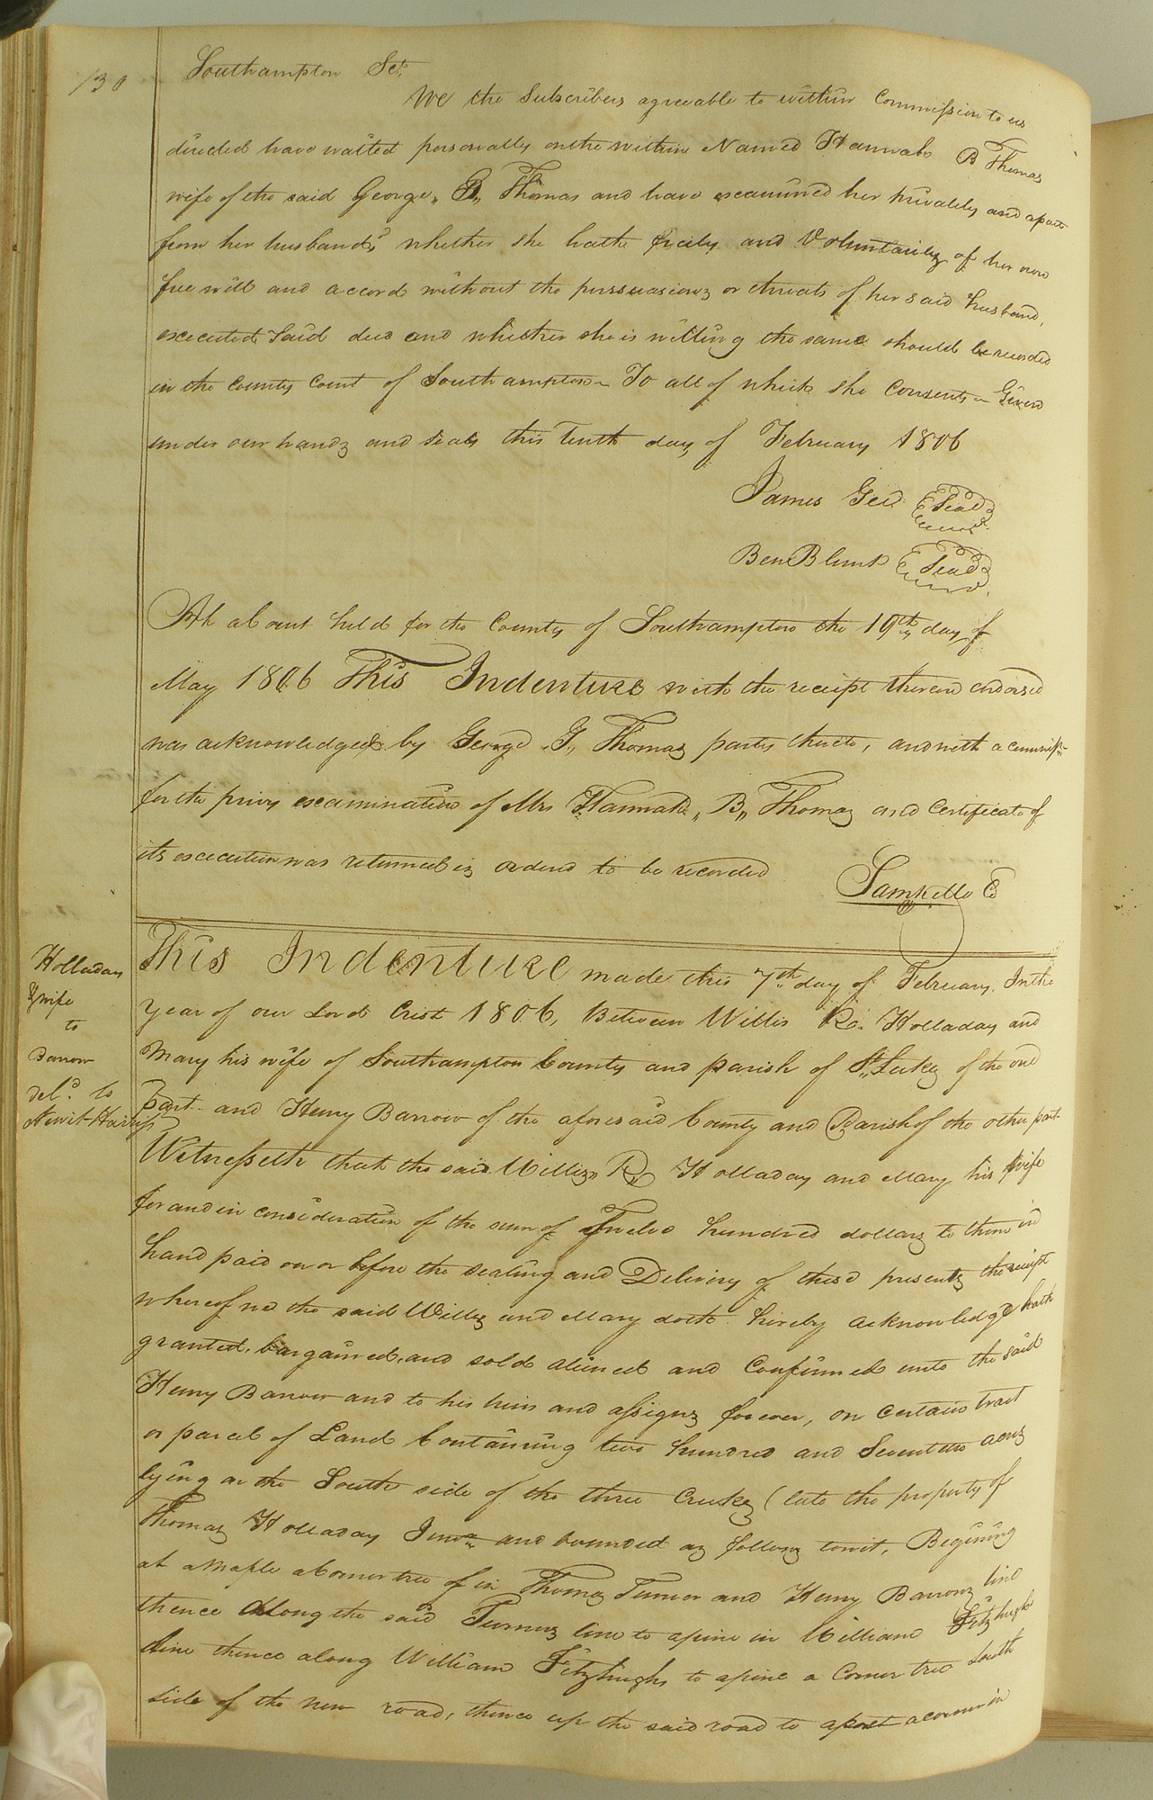 130
Southampton Sct.
We the Subscribers agreeable to within Commission to us
directed have waited personally on the within Named Hannah B Thomas
wife of the said George, B,, Thomas and have examined her privately and apart
from her husband, whether she hath freely and Voluntarily of her own
free will and accord without the perssuasions or threats of her said husband,
executed said deed and whether she is willing the same should be recorded
in the County Court of Southampton To all of which she Consents Given
under our hands and seals this Tenth day of February 1806
James Gee Seal
Ben Blunt Seal
At a Court held for the County of Southampton the 19th day of
May 1806 This Indenture with the receipt thereon endorsed
was acknowledged by George ,G,, Thomas party thereto, and with a commiss
for the privy examination of Mrs Hannah ,, B,, Thomas and Certificate of
its execution was returned is ordered to be recorded
Saml Kello C
Holladay
& wife
to
Barrow
Deld. to
This Indenture made this 7th day of February. In the
year of our Lord Crist 1806, Between Willis R. Holladay and
Mary his wife of Southampton County and parish of St. Lukes of the one
part and Henry Barrow of the aforesaid County and Parish of the other part
Witnesseth that the said Willis,, R,, Holladay and Mary his wife
for and in consideration of the sum of Twelve hundred dollars to them in
hand paid on or before the sealing and Delivery of these presents the receipt
whereof we the said Willis and Mary doth hereby acknowledge hath
granted, bargained, and sold aliened and Confirmed unto the said
Henry Barrow and to his heirs and assigns forever, on certain tract
or parcel of Land Containing two hundred and Seventeen acres
lying on the South side of the three Creeks (late the property of
Thomas Holladay Junr. and bounded as follows towit, Begining
at a Maple a Corner tree of in Thomas Turner and Henry Barrows line
thence along the said Turners line to a pine in William Fitzhughs
line thence along William Fitzhughs to a pine a Corner tree South
side of the new road, thence up the said road to a post a corner in